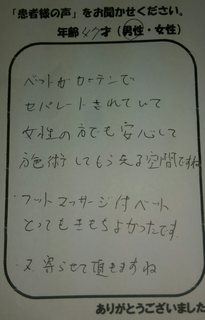 「患者様の声」をお聞かせください。
年齢 47才 (男性・女性)
ベットがカーテンで
セパレートされていて
女性の方でも安心して
施術してもらえる空間ですね
・フットマッサージ付ベット
とってもきもちよかったです。
・又寄らせて頂きますね
ありがとうございました